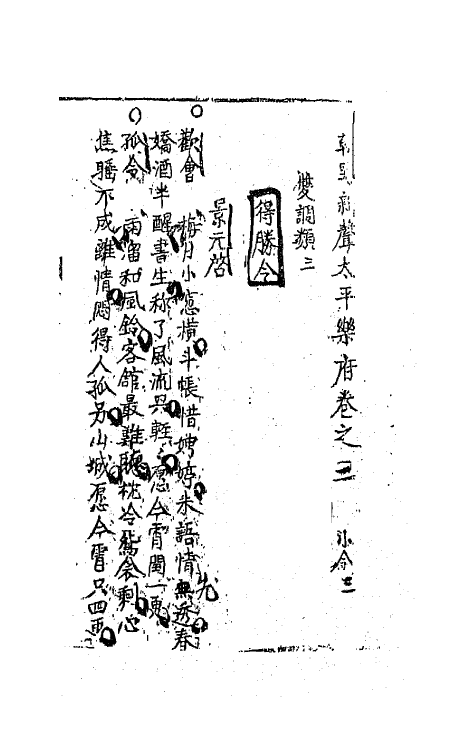 朝野新聲太平樂府卷之三 小令三
雙調類三
得勝令
景元啓
歡會 梅月小窓橫斗帳惜娉婷未語情先透春
嬌酒半醒書生称了風流興輕〻愿今宵閏一更
孤令 雨溜和風鈴客館最難聽枕冷鴛衾剩心
焦睡不成離情悶得人孤另山城愿今宵只四更